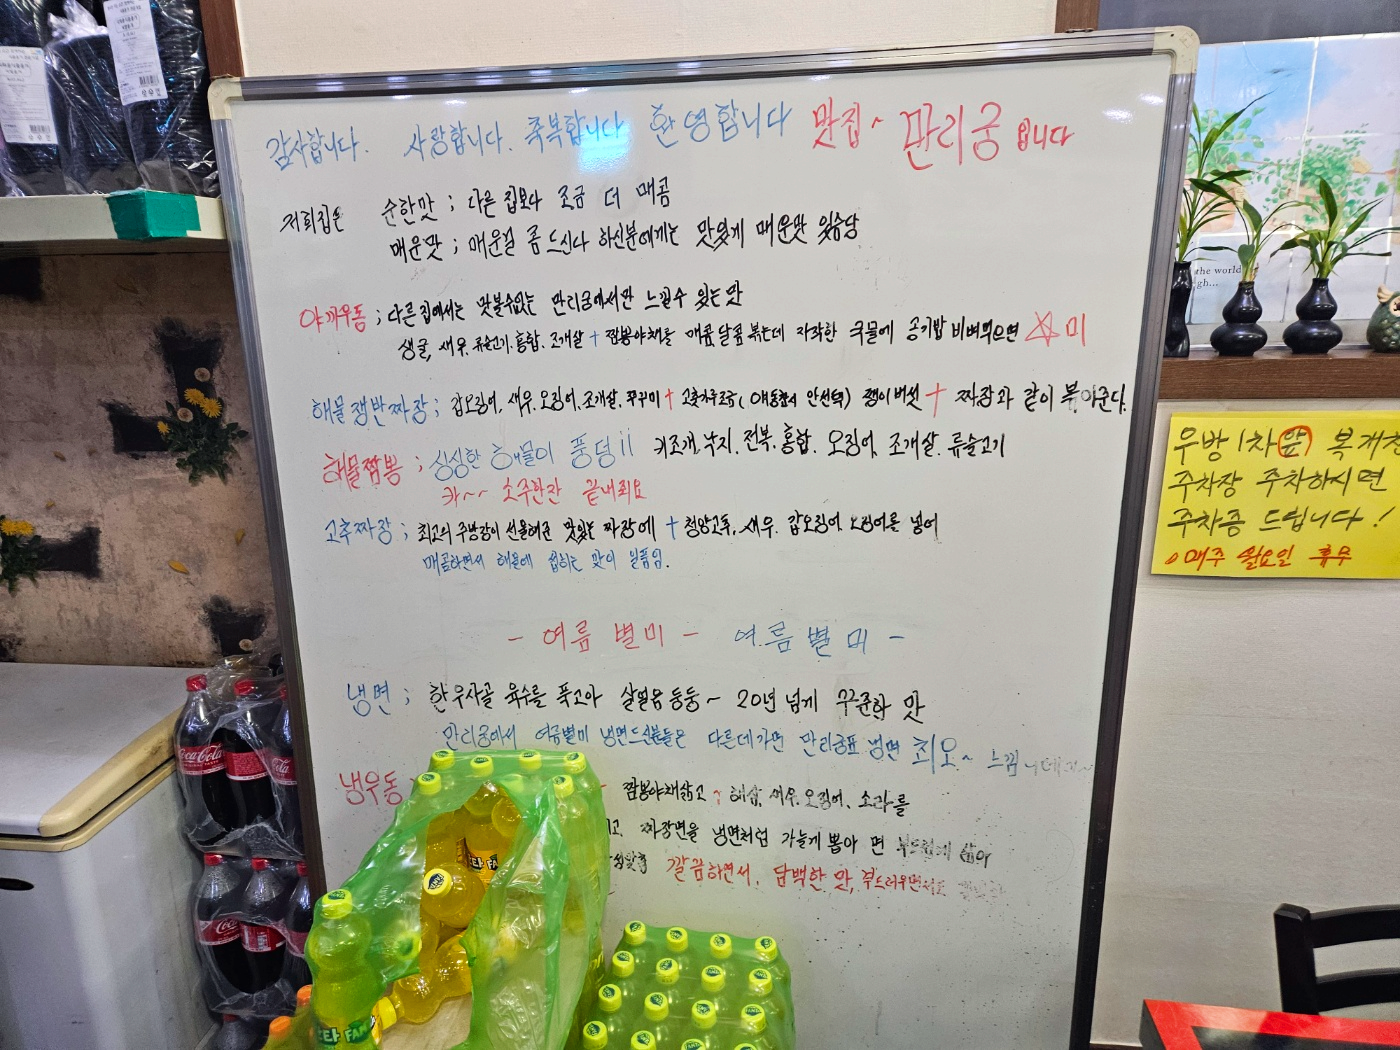 감사합니다. 사랑합니다. 축복합니다 환영합니다 맛집~ 만리궁입니다
저희집은 순한맛 ; 다른집보다 조금 더 매콤
매운맛 ; 매운걸 좀 드신다 하신분에게는 맛있게 매운맛 있습당
야끼우동 ; 다른집에서는 맛볼수없는 만리궁에서만 느낄수 있는 맛
생굴, 새우, 류슬고기, 홍합, 조개살 + 짬뽕야채를 매콤,달콤 볶는데 자작한 국물에 공기밥 비벼먹으면 미
해물쟁반짜장 ; 갑오징어, 새우, 오징어, 조개살, 쭈꾸미 + 고춧가루조금( 안선택) 팽이버섯 + 짜장과 같이 볶아준다.
해물짬뽕 ; 싱싱한 해물이 풍덩!! 키조개, 낙지, 전복, 홍합, 오징어, 조개살, 류슬고기
캬~~ 소주한잔 끝내줘요
고추짜장 ; 최고의 주방장이 선물해준 맛있는 짜장에 + 청양고추, 새우, 갑오징어, 오징어를 넣어
매콤하면서 해물에 씹히는 맛이 일품임.
- 여름 별미 - 여름 별미 -
냉면 ; 한우사골 육수를 푹고아 살얼음 동동~ 20년 넘게 꾸준한 맛
만리궁에서 여름별미 냉면드신분들은 다른데가면 만리궁표 냉면 최고~
냉우동 짬뽕야채삶고 해삼, 새우, 오징어, 소라를
짜장면을 냉면처럼 가늘게 뽑아 면 부드럽게 삶아
깔끔하면서, 담백한 맛, 부드러우면서도
우방 1차 앞 복개천
주차장 주차하시면
주차증 드립니다!
매주 월요일 휴무
the world
Coca-Cola
Coca-Cola